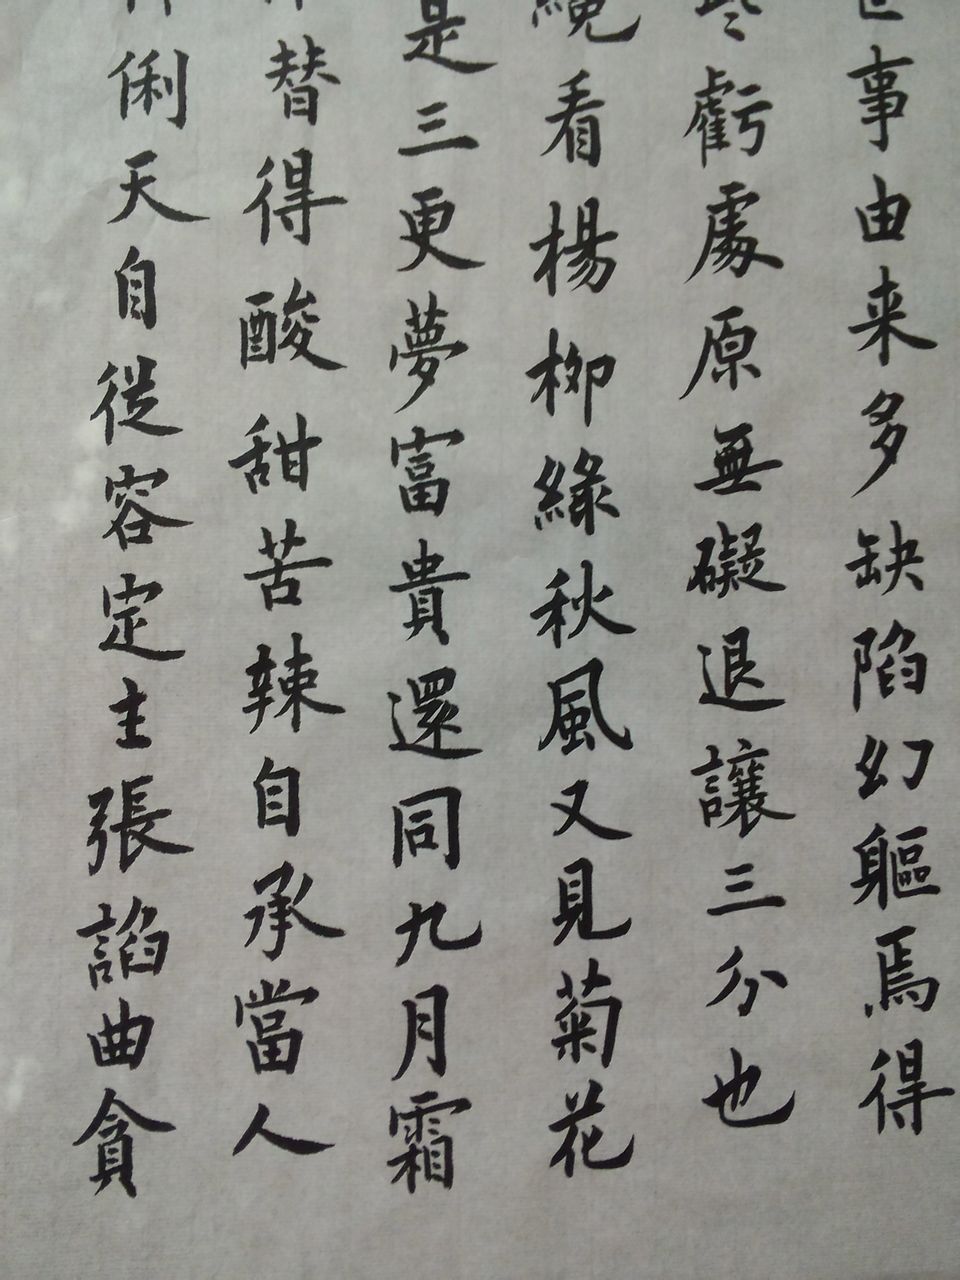 事由来多缺陷幻軀焉得
虧處原無礙退讓三分也
看楊柳緑秋風又見菊花
是三更夢富貴還同九月霜
替得酸甜苦辣自承當人
俐天自從容定主張諂曲貪